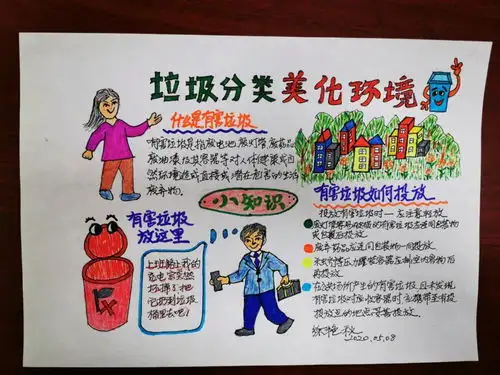 垃圾分类美化环境
什么是有害垃圾
有害垃圾是指废电池、废灯管、废药品
废油漆及其容器等对人体健康或自
然环境造成直接或潜在危害的生活
废弃物。
小知识
有害垃圾如何投放
投放有害垃圾时一应注意轻放
废灯管等易破损的有害垃圾应连带包装物
或包裹后投放
废弃药品应连同包装物一同投放
杀虫剂等压力罐装容器应制空内容物后
再投放
在公共场所产生的有害垃圾且未发现
有害垃圾对应收容器时应携带至有投
投放点的地点妥善投放
有害垃圾
放这里
上班路上我的
充电宝突然
坏掉了,把
它扔到垃圾
桶里去吧!
2020.05.08